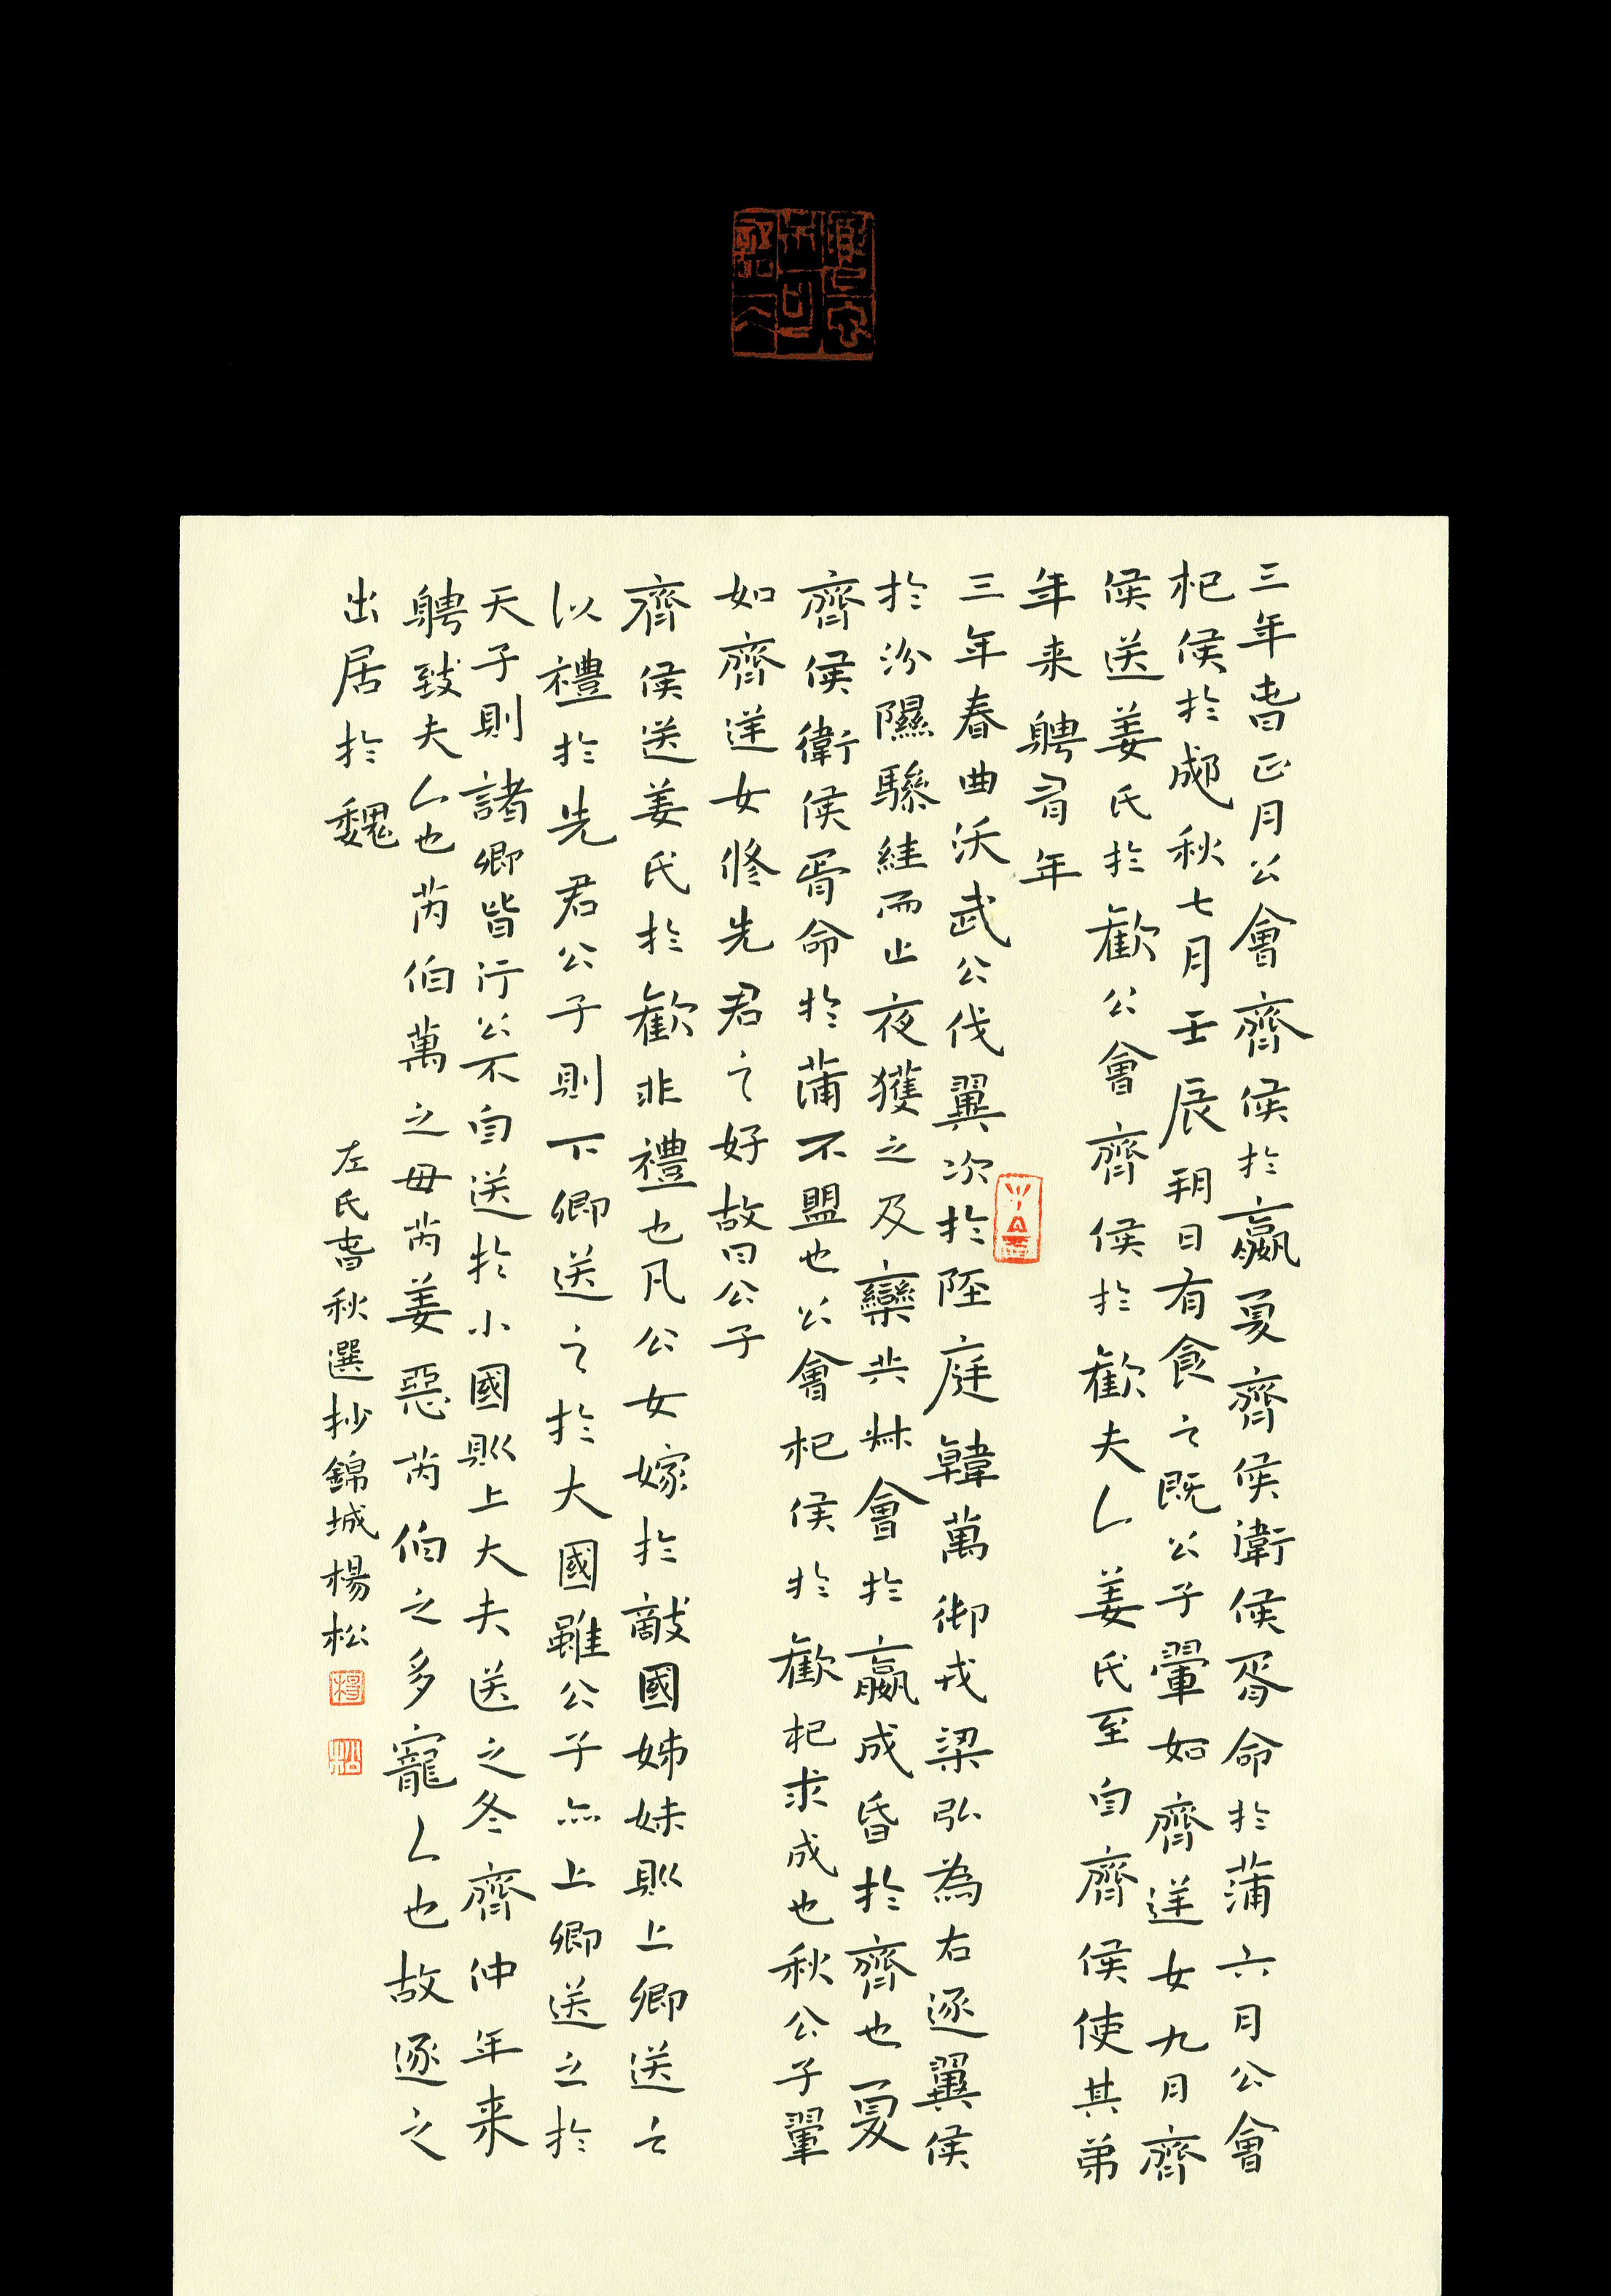 三年春正月公會齊侯於嬴夏齊侯衛侯胥命於蒲六月公會
杞侯於郕秋七月壬辰朔日有食之既公子翬如齊逆女九月齊
侯送姜氏於歡公會齊侯於歡夫人姜氏至自齊侯使其弟
年来聘有年
三年春曲沃武公伐翼次於陘庭韓萬御戎梁弘為右逐翼侯
於汾隰驂絓而止夜獲之及欒共叔會於嬴成昏於齊也夏
齊侯衛侯胥命於蒲不盟也公會杞侯於歡杞求成也秋公子翬
如齊逆女修先君之好故曰公子
齊侯送姜氏於歡非禮也凡公女嫁於敵國姊妹則上卿送之
以禮於先君公子則下卿送之於大國雖公子亦上卿送之於
天子則諸卿皆行公不自送於小國則上大夫送之冬齊仲年来
聘致夫人也芮伯萬之母芮姜惡芮伯之多寵人也故逐之
出居於魏
左氏春秋選抄錦城楊松
楊
松